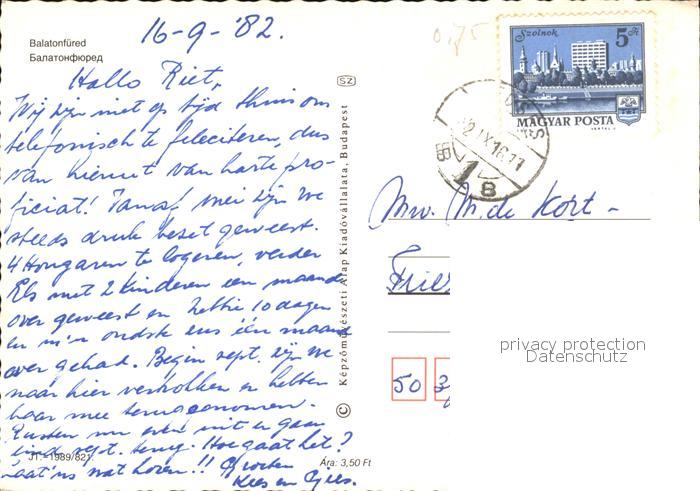 16-9-'82.
Balatonfüred
Балатонфюред
Hallo Riet,
Wij zijn niet op tijd thuis om
telefonisch te feleciteren, dus
van hieruit van harte pro-
ficiat! Vanaf mei zijn we
steeds druk bezet geweest.
4 Hongaren te logeren, verder
Els met 2 kinderen een maand
over geweest en hettie 10 dagen
en m'n oudste zus één maand
over gehad. Begin sept. zijn we
naar hier vertrokken en hebben
haar mee teruggenomen.
Rusten nu even uit en gaan
eind sept. terug. Hoe gaat het?
Laat 'ns wat horen!! Groeten
Kees en Gijs.
JT.-1989/821.
Ára: 3,50 Ft
Képzőművészeti Alap Kiadóvállalata, Budapest
SZ
©
0,75
Szolnok
5 Ft
MAGYAR POSTA
82 IX 16. 11
1
8
Mw. M. de Kort -
50 3
privacy protection
Datenschutz